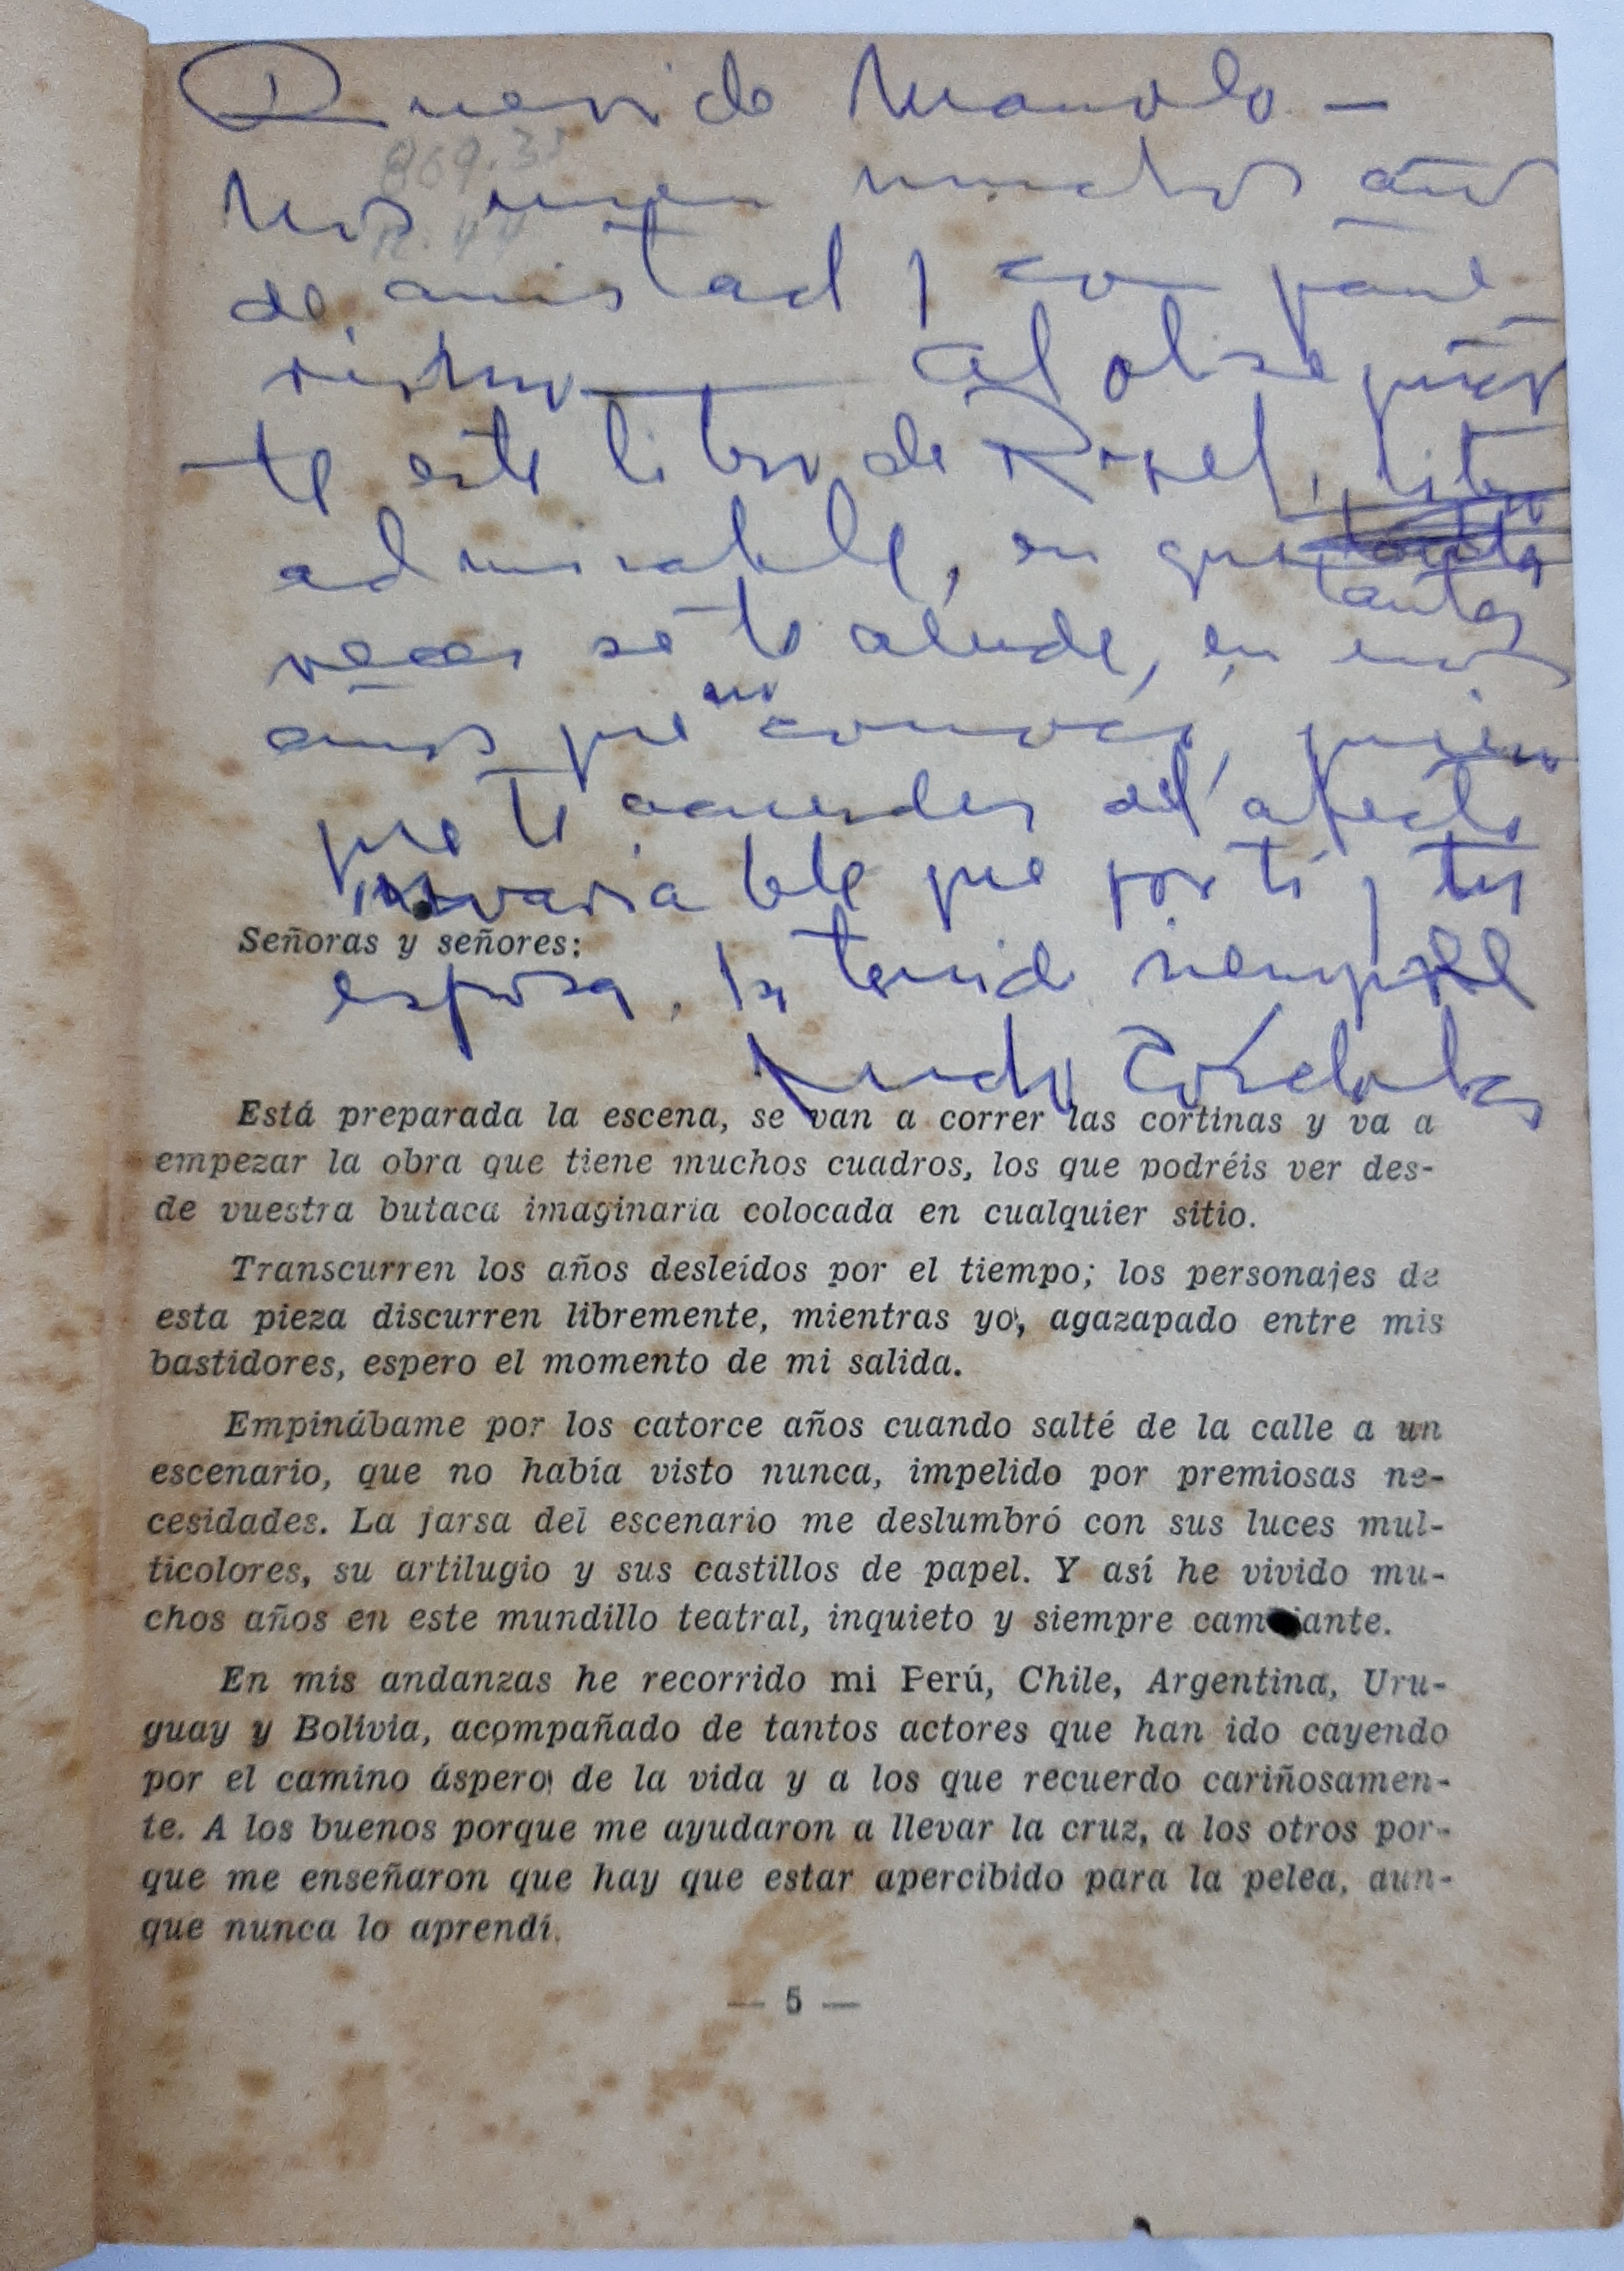 Querido Manolo —
869.35
Nos unen muchos años
de amistad y compañe-
rismo — Al obsequiar-
te este libro de Ripel, libro
admirable, en que tantas
veces se te alude, en
años que no conocí, quiero
que te acuerdes del afecto
invariable que por ti y tu
Señoras y señores:
esposa, ha tenido siempre
Está preparada la escena, se van a correr las cortinas y va a
empezar la obra que tiene muchos cuadros, los que podréis ver des-
de vuestra butaca imaginaria colocada en cualquier sitio.
Transcurren los años desleídos por el tiempo; los personajes de
esta pieza discurren libremente, mientras yo, agazapado entre mis
bastidores, espero el momento de mi salida.
Empinábame por los catorce años cuando salté de la calle a un
escenario, que no había visto nunca, impelido por premiosas ne-
cesidades. La farsa del escenario me deslumbró con sus luces mul-
ticolores, su artilugio y sus castillos de papel. Y así he vivido mu-
chos años en este mundillo teatral, inquieto y siempre cambiante.
En mis andanzas he recorrido mi Perú, Chile, Argentina, Uru-
guay y Bolivia, acompañado de tantos actores que han ido cayendo
por el camino áspero de la vida y a los que recuerdo cariñosamen-
te. A los buenos porque me ayudaron a llevar la cruz, a los otros por-
que me enseñaron que hay que estar apercibido para la pelea, aun-
que nunca lo aprendí.
— 5 —